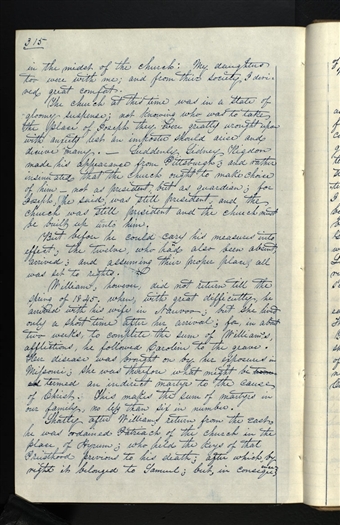 315
in the midst of the church: My daughters
too were with me; and from their society, I deri-
ved great comfort.
The church at this time was in a state of
glomy suspense; not knowing who was to take
the place of Joseph they were greatly wrought upon
with anxiety lest an imposter should arise and
deceive many. Suddenly, Sidney Rigdon
made his appearance from Pittsburgh; and rather
insinuated that the church ought to make choice
of him — not as president, but as guardian; for
Joseph, he said, was still president, and the
church was still president and the church must
be built up unto him.
But before he could carry his measures into
effect, the twelve, who had also been absent
arrived; and assuming their proper place, all
was set to rights.
William, however, did not return till the
spring of 1845, when, with great difficulty, he
arrived with his wife in Nauvoo; but she lived
only a short time after her arrival; for, in about
two weeks, to complete the sum of William's
afflictions, he followed Caroline to the grave.
Her disease was brought on by her exposures in
Missouri; she was therefore what might be
termed an indirect martyr to the cause
of Christ. This makes the sum of martyrs in
our family, no less than six in number.
Shortly after William's return from the east,
he was ordained Patriarch of the church in the
place of Hyrum; who held the keys of that
Priesthood previous to his death; after which by
rights it belonged to Samuel; but, in conseque